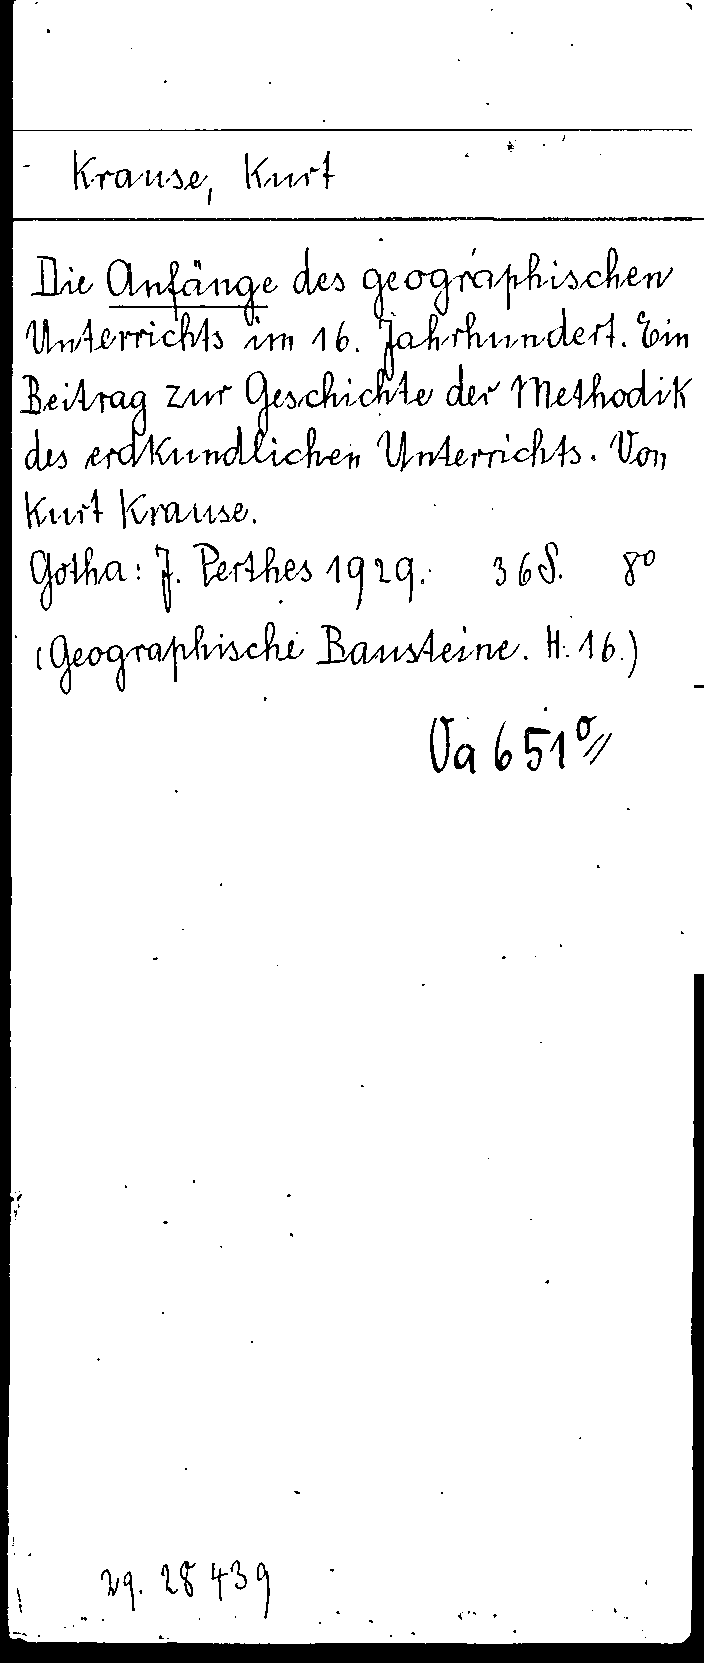 Krause, Kurt
Die Anfänge des geographischen
Unterrichts im 16. Jahrhundert. Ein
Beitrag zur Geschichte der Methodik
des erdkundlichen Unterrichts. Von
Kurt Krause.
Gotha: J. Perthes 1929. 36 S. 8°
(Geographische Bausteine. H. 16.)
Va 651
29. 28 439